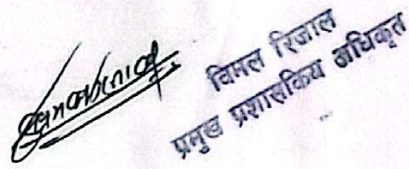 विमल रिजाल
प्रमुख प्रशासकिय अधिकृत